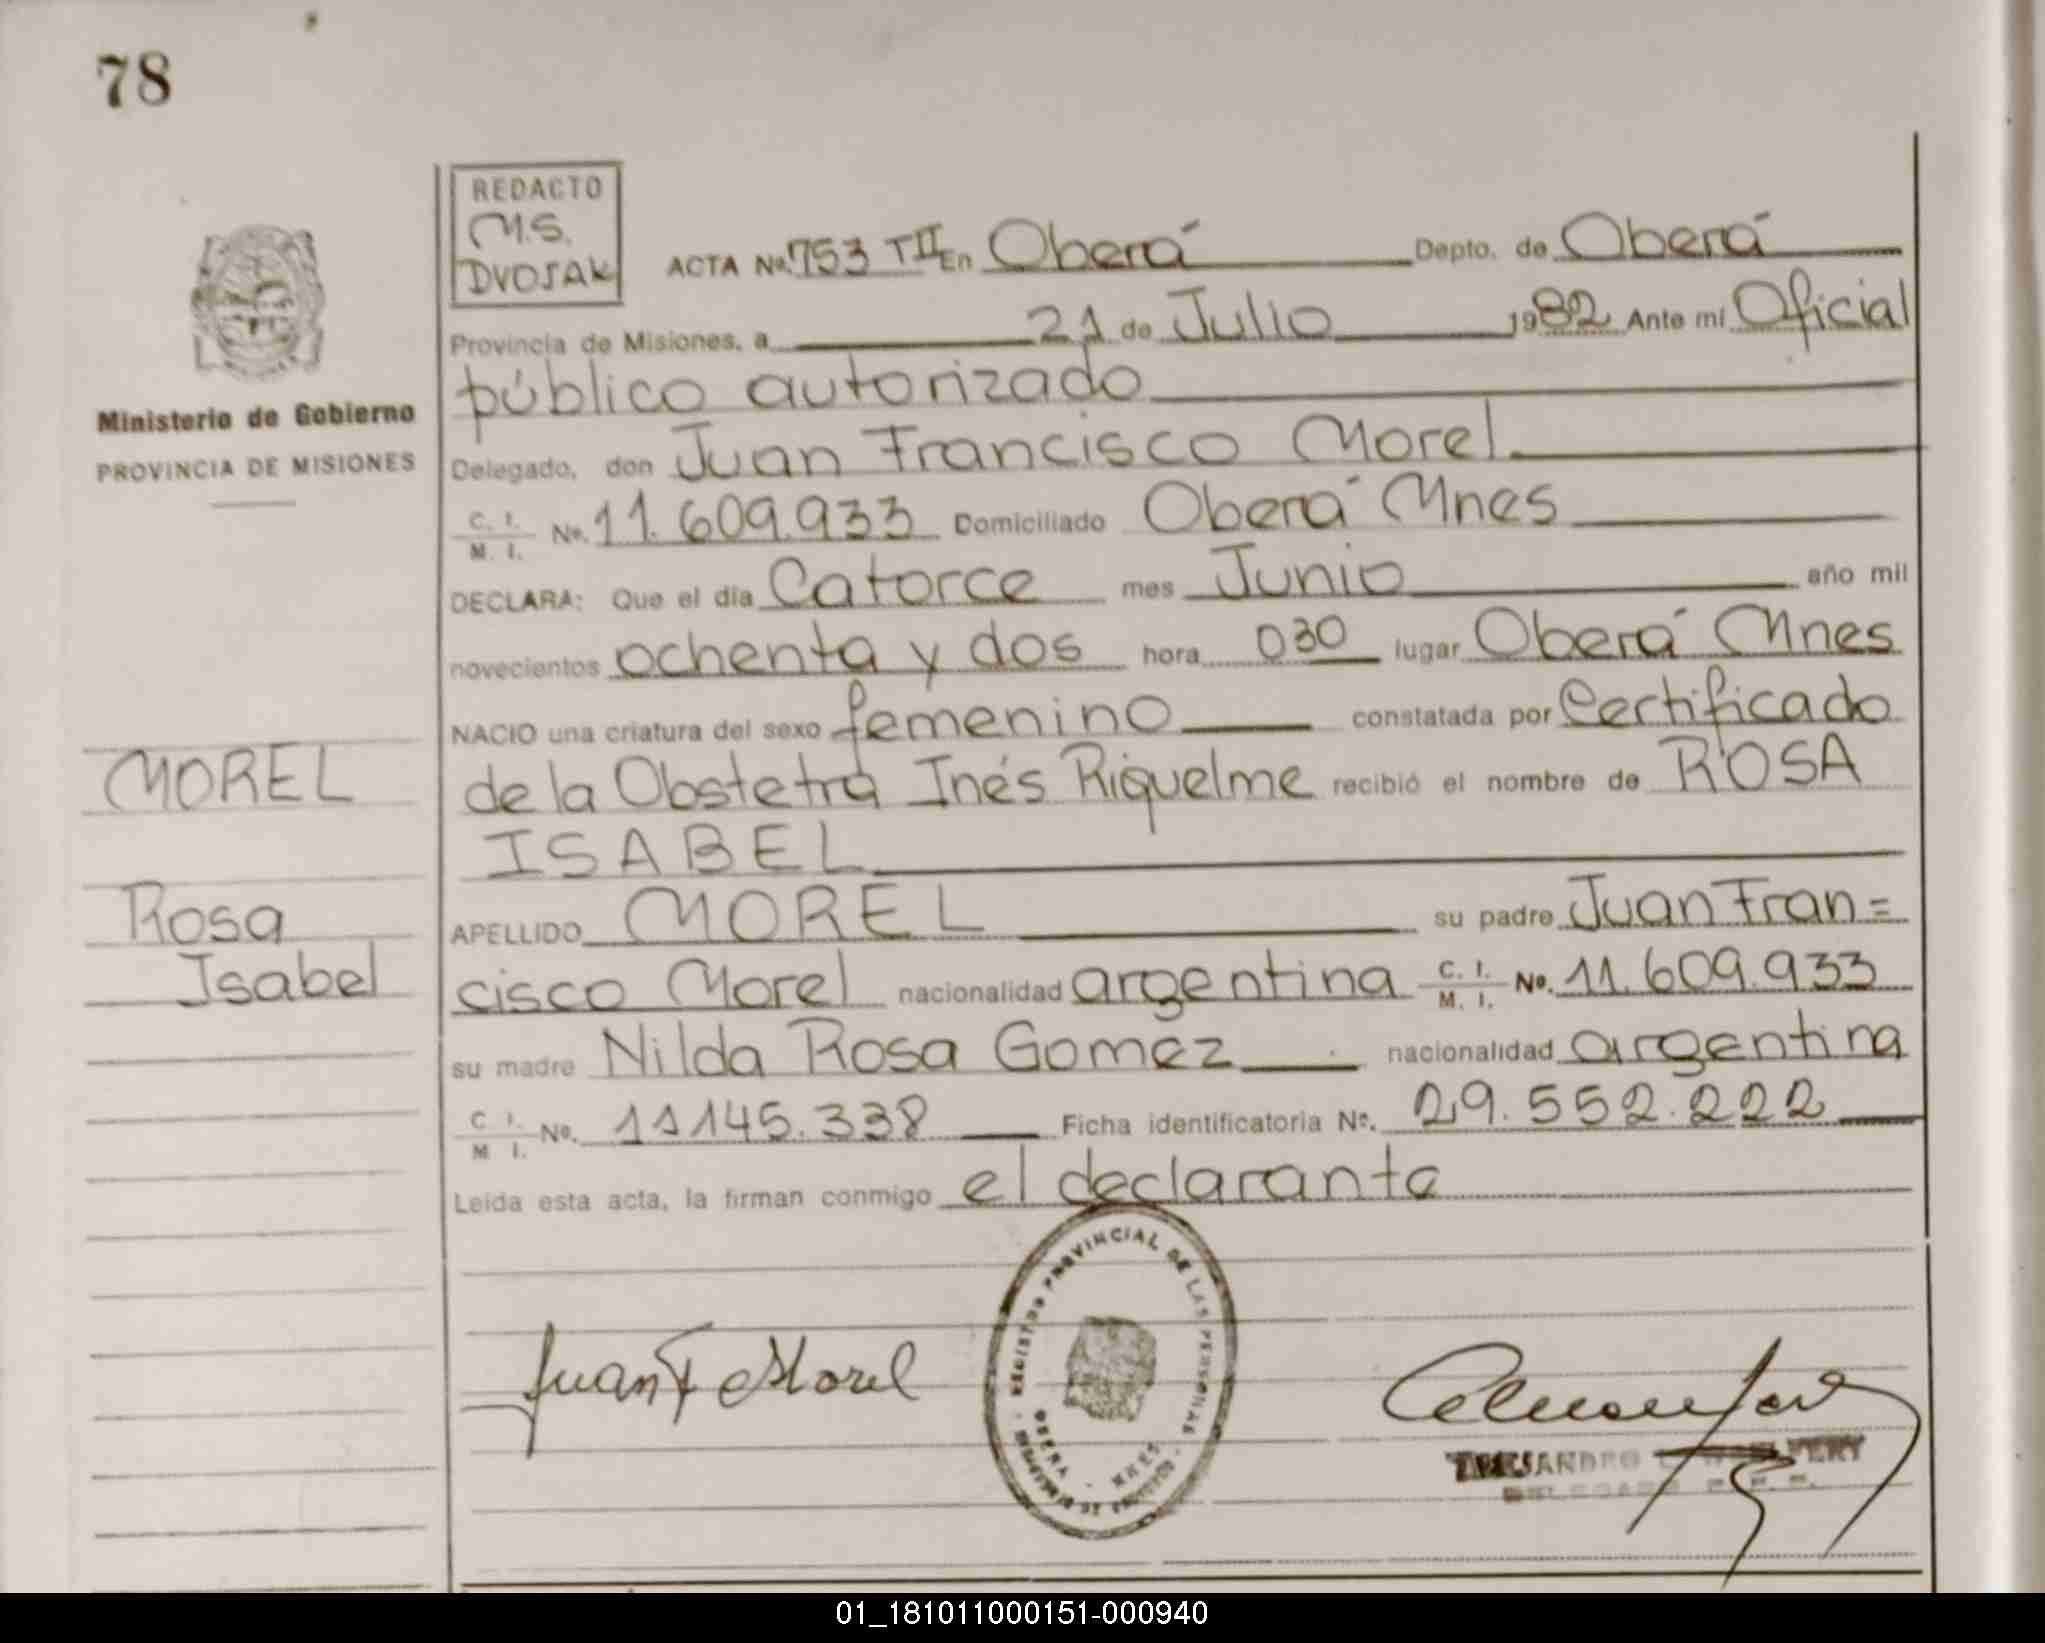 78
REDACTO
M.S.
DVOJAK
ACTA Nº 753 TII En Oberá Depto. de Oberá
Provincia de Misiones, a 21 de Julio 1982 Ante mí Oficial
público autorizado
Delegado, don Juan Francisco Morel
C. I. / M. I. Nº. 11.609.933 Domiciliado Oberá Mnes
DECLARA: Que el día Catorce mes Junio año mil
novecientos ochenta y dos hora 030 lugar Oberá Mnes
NACIO una criatura del sexo femenino constatada por Certificado
de la Obstetra Inés Riquelme recibió el nombre de ROSA
ISABEL
APELLIDO MOREL su padre Juan Fran=
cisco Morel nacionalidad argentina C. I. / M. I. Nº. 11.609.933
su madre Nilda Rosa Gomez nacionalidad argentina
C. I. / M. I. Nº. 11145.338 Ficha identificatoria Nº. 29.552.222
Leída esta acta, la firman conmigo el declarante
Ministerio de Gobierno
PROVINCIA DE MISIONES
MOREL
Rosa
Isabel
Juan F Morel
REGISTRO PROVINCIAL DE LAS PERSONAS
OBERA - MNES
01_181011000151-000940